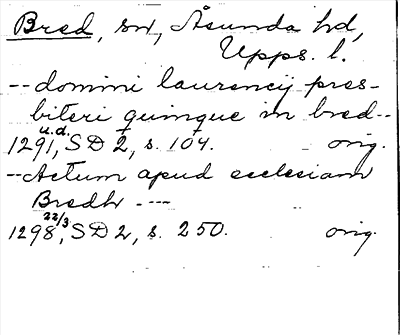 Bred, sn, Åsunda hd,
Upps. l.
--domini laurencij pres-
biteri quinque in bred--
1291, u.d. SD 2, s. 104. orig.
--Actum apud ecclesiam
Bredh ----
1298 22/3, SD 2, s. 250. orig.